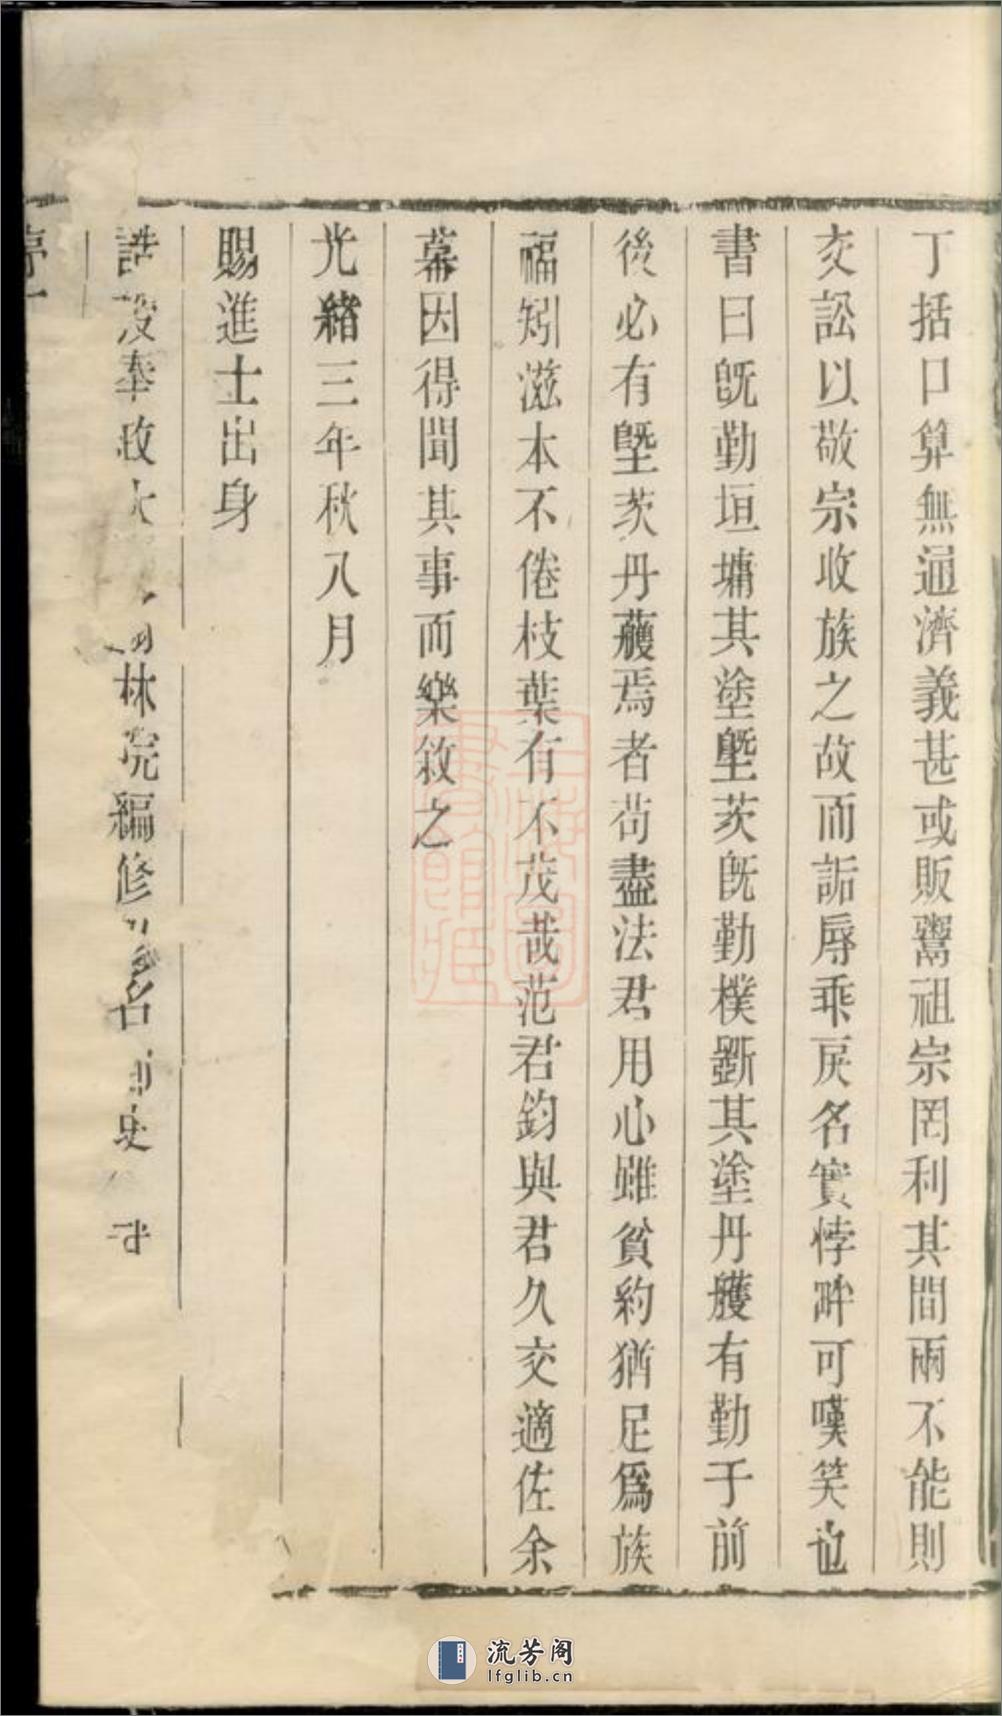 丁括口算無通濟義甚或販鬻祖宗罔利其間兩不能則
交訟以敬宗收族之故而詬辱乖戾名實悖舛可嘆笑也
書曰旣勤垣墉其塗塈茨旣勤樸斲其塗丹雘有勤于前
後必有塈茨丹雘焉者茍盡法君用心雖貧約猶足爲族
福矧滋本不倦枝葉有不茂哉范君鈞與君久交適佐余
幕因得聞其事而樂敘之
光緒三年秋八月
賜進士出身
誥授奉政大林院編修名史
上海圖書館藏
流芳阁
lfglib.cn